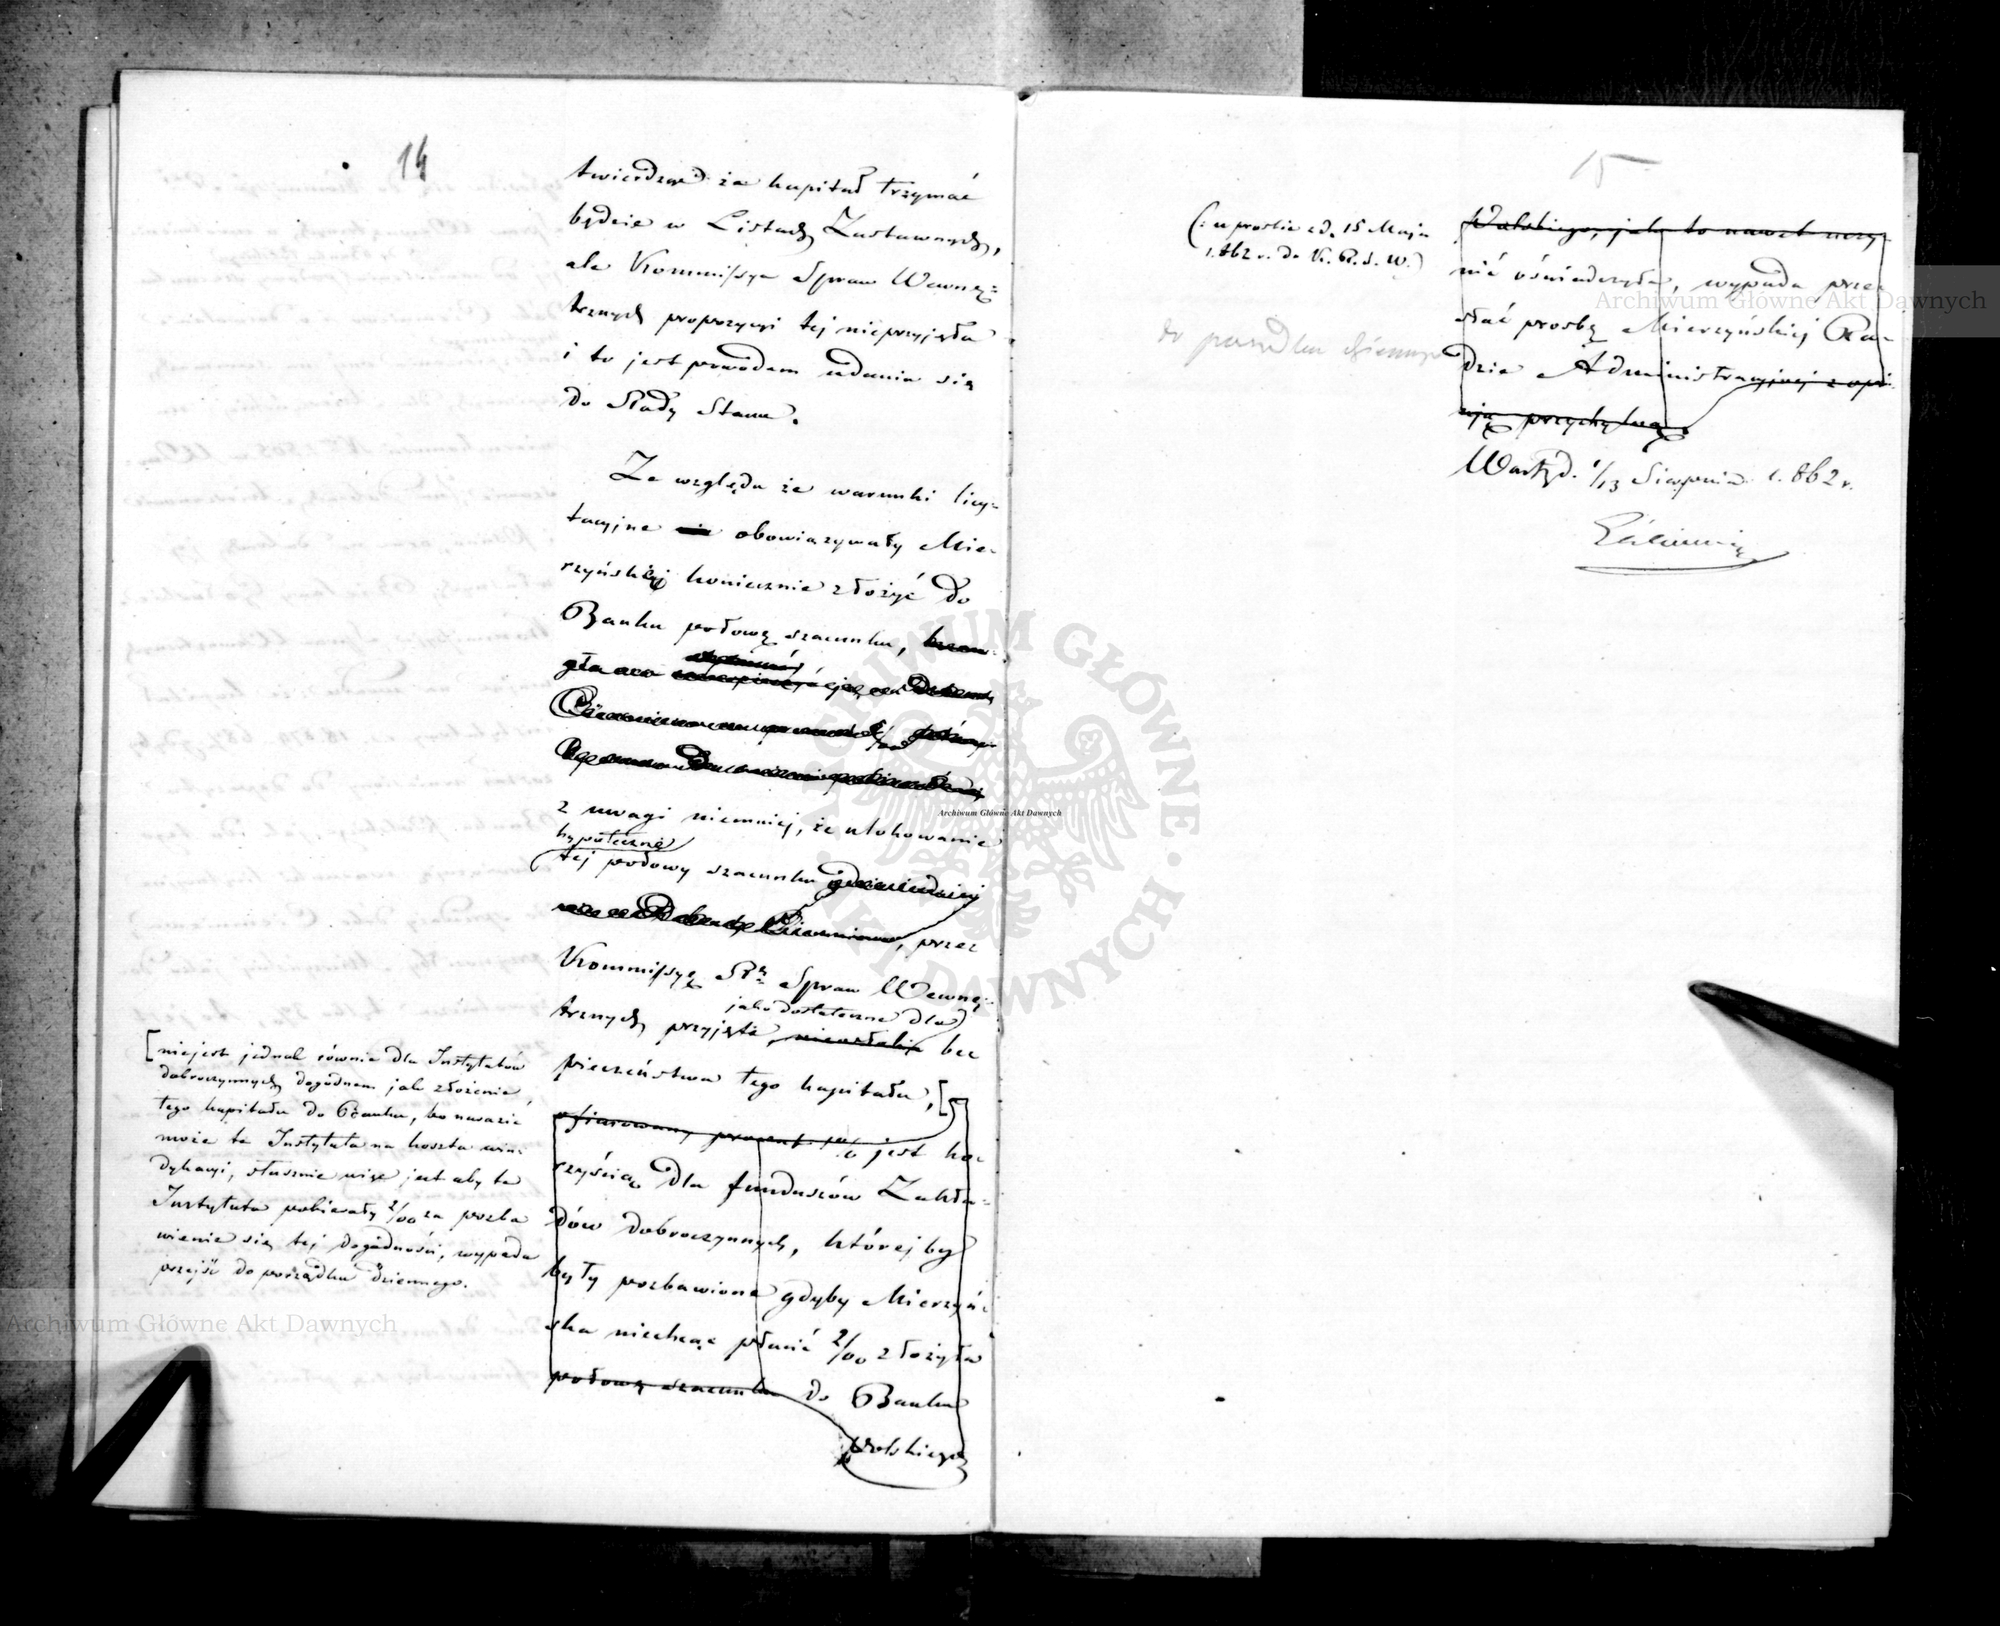 14
twierdząc że kapitał trzymać
będzie w Listach Zastawnych,
ale Kommissya Spraw Wewnę=
trznych propozycyi tej nieprzyjęła
i to jest powodem udania się
do Rady Stanu.
Ze względu że warunki licy=
tacyjne obowiązywały Mie-
rzyńską koniecznie złożyć do
Banku połowę szacunku,
z uwagi niemniej, że ulokowanie
hypoteczne
tej połowy szacunku
przez
Kommissyę Rz. Spraw Wewnę=
jako dostateczne dla
trznych przyjęte, bez
pieczeństwa tego kapitału, [
ofiarowany procent jest ko-
rzyścią dla funduszów Zakła=
dów dobroczynnych, której by
były pozbawione gdyby Mierzyń=
ska niechcąc płacić 2/00 złożyła
połowę szacunku do Banku
Polskiego
[niejest jednak równie dla Instytutów
dobroczynnych dogodnem jak złożenie
tego kapitału do Banku, bo narazić
może te Instytuta na koszta win=
dykacyi, słusznie więc jest aby te
Instytuta pobierały 2/00 za pozba
wienie się tej dogodności, wypada
przejść do porządku dziennego.
15
(: w prośbie z d. 15 Maja
1862 r. do K. R. S. W.)
do porządku dziennego
Polskiego, jak to nawet uczy=
nić oświadczyła, wypada prze=
słać prośbę Mierzyńskiej Ra=
dzie Administracyjnej z opi=
nią przychylną.
Warsz. d. 1/13 Sierpnia 1862 r.
Archiwum Główne Akt Dawnych
Archiwum Główne Akt Dawnych
Archiwum Główne Akt Dawnych
ARCHIWUM GŁÓWNE AKT DAWNYCH